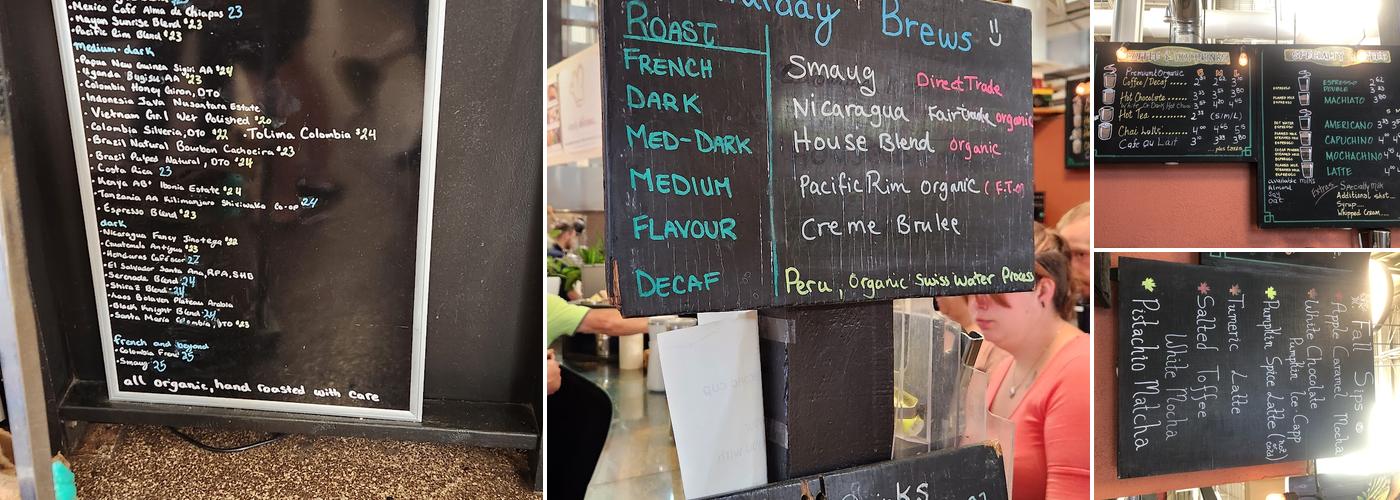 Mexico Café Alma de Chiapas 23
Mayan Sunrise Blend $23
Pacific Rim Blend $23
medium-dark
Papua New Guinea Sigiri AA $24
Uganda Bugisu AA $23
Colombia Honey Giron, DTO
Indonesia Java Nusantara Estate
Vietnam Gr.1 Wet Polished $20
Colombia Silveria, DTO $22 Tolima Colombia $24
Brazil Natural Bourbon Cachoeira $23
Brazil Pulped Natural, DTO $24
Costa Rica 23
Kenya AB+ Ibonia Estate $24
Tanzania AA Kilimanjaro Shiviwaka Co-op 24
Espresso Blend $23
dark
Nicaragua Fancy Jinotega $22
Guatemala Antigua $23
Honduras Cafescor 27
El Salvador Santa Ana, RPA, SHB
Serenade Blend 24
Shiraz Blend 24
Laos Bolaven Plateau Arabia
Black Knight Blend 24
Santa Maria Colombia, DTO $23
french and beyond
Colombia French 25
Smaug 25
all organic, hand roasted with care
Brews
ROAST
FRENCH Smaug Direct Trade
DARK Nicaragua Fair Trade organic
MED-DARK House Blend organic
MEDIUM Pacific Rim organic
FLAVOUR Creme Brulee
DECAF Peru, Organic Swiss Water Process
Premium Organic
Coffee / Decaf
Hot Chocolate
White or Dark Hot Choc
Hot Tea (S/M/L)
Chai Latts
Cafe Au Lait
plus taxes
SPECIALTY
ESPRESSO
DOUBLE
MACHIATO
AMERICANO
CAPUCHINO
MOCHACHINO
LATTE
available milks
Almond
Soy
Oat
Extras
Specialty Milk
Additional shot
Syrup
Whipped Cream
Fall Sips
Apple Caramel Mocha
White Chocolate
Pumpkin Ice Capp
Pumpkin Spice Latte (hot/iced)
Tumeric Latte
Salted Toffee
White Mocha
Pistachio Matcha